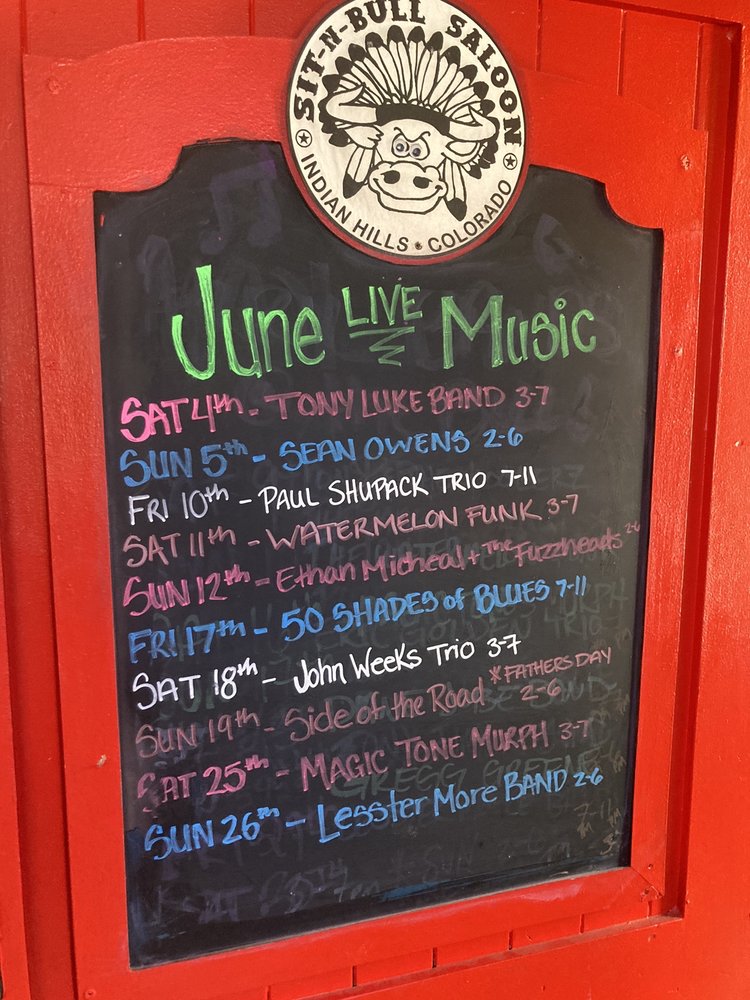 SIT-N-BULL SALOON
INDIAN HILLS • COLORADO
June LIVE Music
SAT 4th - TONY LUKE BAND 3-7
SUN 5th - SEAN OWENS 2-6
FRI 10th - PAUL SHUPACK TRIO 7-11
SAT 11th - WATERMELON FUNK 3-7
SUN 12th - Ethan Micheal + The Fuzzheads 2-6
FRI 17th - 50 SHADES of BLUES 7-11
SAT 18th - John Weeks Trio 3-7
SUN 19th - Side of the Road *FATHERS DAY 2-6
SAT 25th - MAGIC TONE MURPH 3-7
SUN 26th - Lesster More BAND 2-6